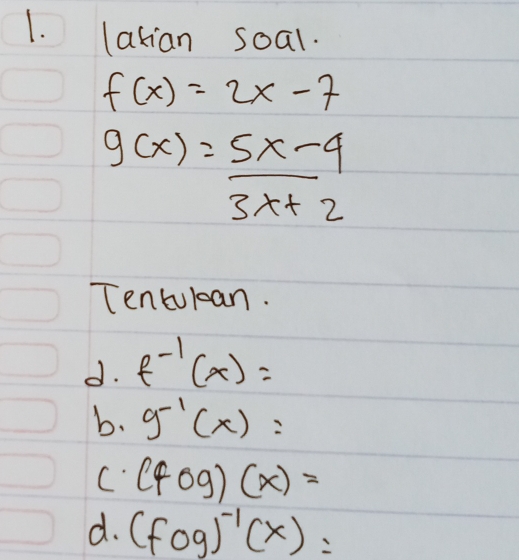 1. latian soal.
f(x) = 2x - 7
g(x) = 5x - 9
3x + 2
Tentukan.
a. f⁻¹(x) =
b. g⁻¹(x) =
c. (fog)(x) =
d. (fog)⁻¹(x) =